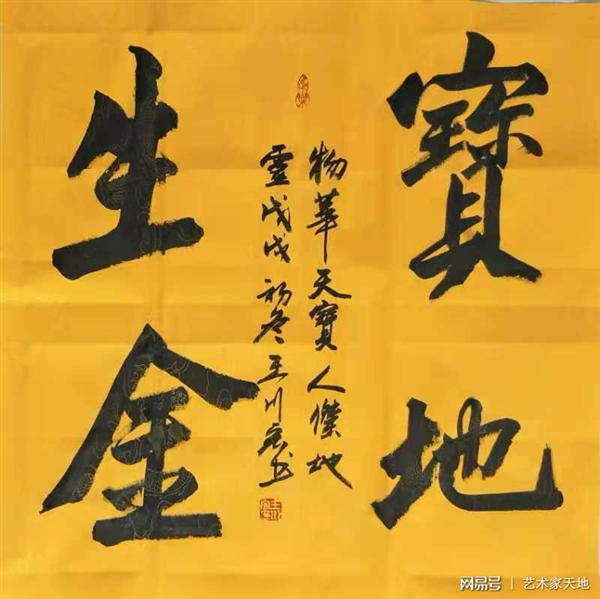 寶地
物華天寶人傑地
靈戊戌初冬王川
生金
网易号 | 艺术家天地